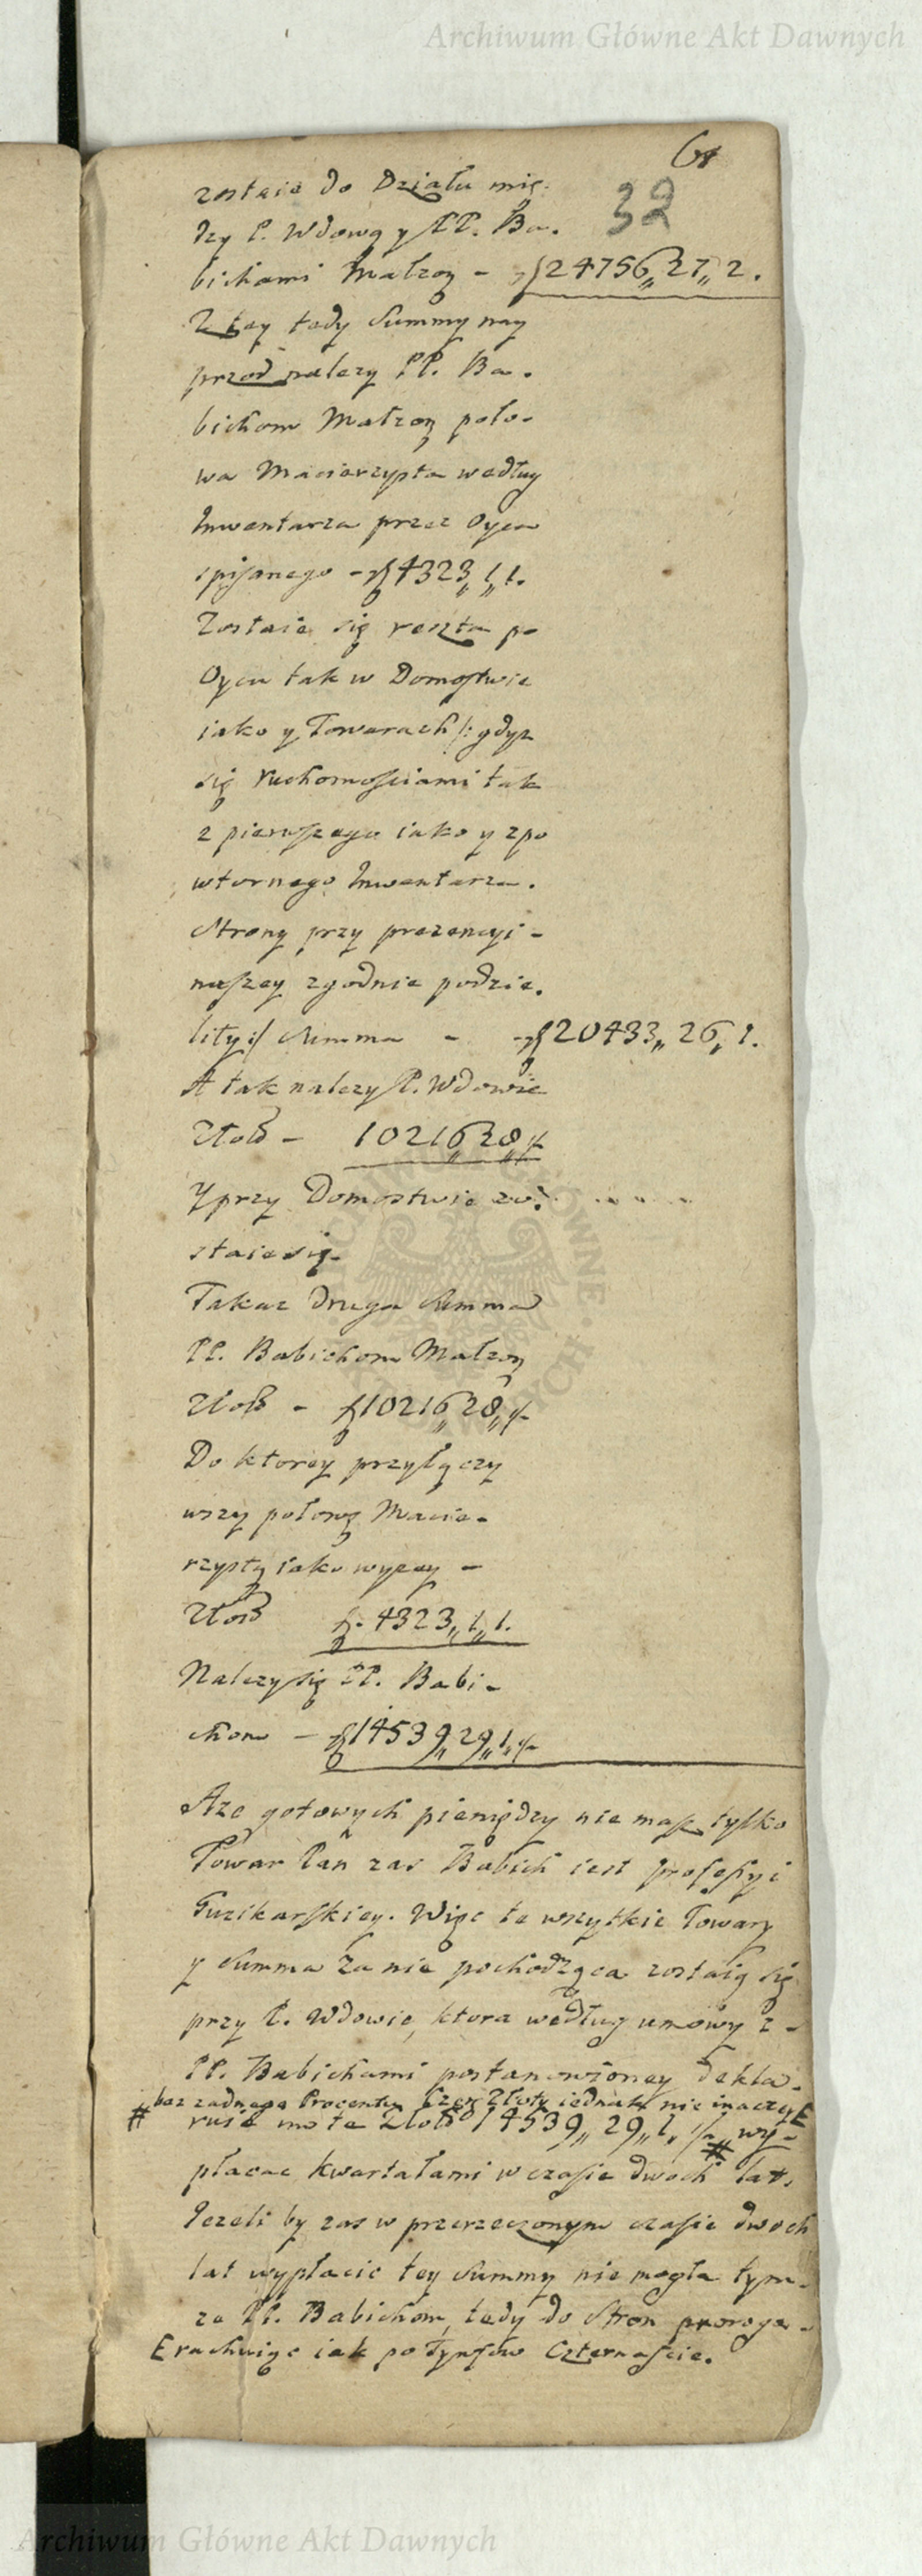 Archiwum Główne Akt Dawnych
61
32
zostaie do Działu mię.
dzy P. Wdową y PP. Ba.
bichami Małzon - f 24756„ 27„ 2.
Z tey tedy Summy nay
przod nalezy PP. Ba.
bichom Małzon poło-
wa Macierzysta według
Inwentarza przez Oyca
spisanego - f 4323„ 1„ 1.
Zostaie się reszta po
Oycu tak w Domostwie
iako y Towarach /: gdyz
się ruchomosciami tak
z pierwszego iako y z po
wtornego Inwentarza.
Strony przy prezencyi -
naszey zgodnie podzie.
liły :/ Summa - f 20433„ 26„ 1.
A tak nalezy P. Wdowie
Złoł - 10216„ 28„
Y przy Domostwie zo
staie się.
Takaz druga Summa
PP. Babichom Małzon
Złoł - f 10216„ 28„
Do ktorey przyłączy
wszy połowę Macie-
rzystą iako wyzey -
Złoł f. 4323„ 1„ 1.
Nalezy się PP. Babi-
chom - f 14539„ 29„ 1.
A ze gotowych pieniędzy nie masz tylko
Towar Pan zas Babich iest professyi
Guzikarskiey. Więc te wszytkie Towary
y Summa za nie pochodząca zostaią się
przy P. Wdowie, ktora według umowy z -
PP. Babichami postanowioney dekla-
# bez zadnego Procentu Czer Złoty iednak nie inaczey E
ruie im te Złoł 14539„ 29„ 1. # wy-
płacac kwartałami w czasie dwoch lat.
Jezeli by zas w przerzeczonym czasie dwoch
lat wypłacic tey Summy nie mogła tym-
ze PP. Babichom, tedy do Stron proroga-
E rachuiąc iak po Tynfow Czternascie.
Archiwum Główne Akt Dawnych